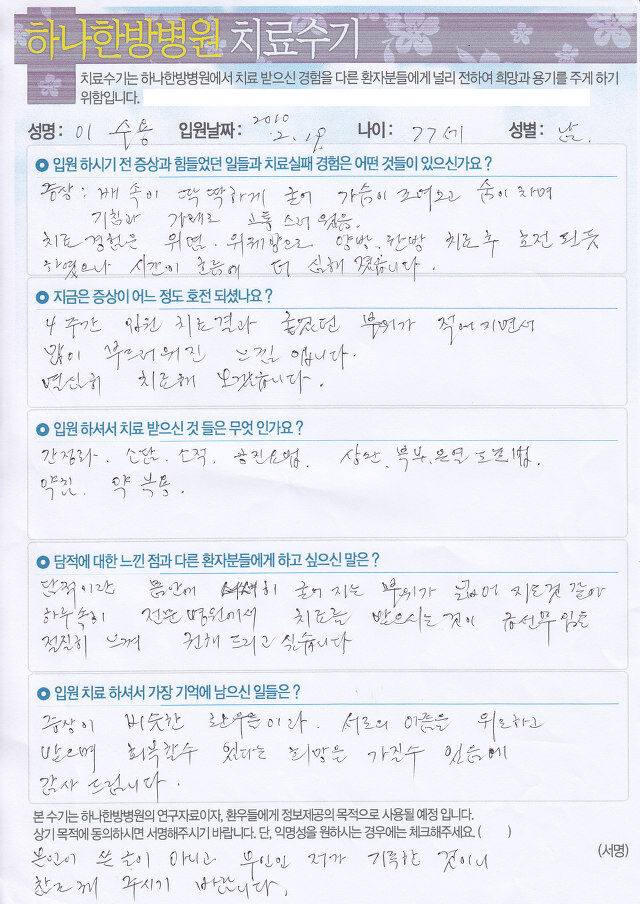 하나한방병원 치료수기
치료수기는 하나한방병원에서 치료 받으신 경험을 다른 환자분들에게 널리 전하여 희망과 용기를 주게 하기
위함입니다.
성명: 이 수용 입원날짜: 2010 2. 19 나이: 77세 성별: 남.
입원 하시기 전 증상과 힘들었던 일들과 치료실패 경험은 어떤 것들이 있으신가요?
증상: 배 속이 딱딱하게 굳어 가슴이 조여오고 숨이 차며
기침과 가래로 고통 스러 웠음.
치료 경험은 위염. 위궤양으로 양방. 한방 치료 후 호전 되듯
하였으나 시간이 흐름에 더 심해 졌습니다.
지금은 증상이 어느 정도 호전 되셨나요?
4주간 입원 치료결과 굳었던 부위가 적어지면서
많이 부드러워진 느낌 입니다.
열심히 치료해 보겠습니다.
입원 하셔서 치료 받으신 것 들은 무엇 인가요?
소담. 소적. 공진요법. 복부.온열
약침. 약 복용.
담적에 대한 느낀 점과 다른 환자분들에게 하고 싶으신 말은?
담적이란 몸안에 굳어 지는 부위가 넓어 지는것 같아
하루 속히 전문 병원에서 치료를 받으시는 것이 급선무 임을
절실히 느껴 권해 드리고 싶습니다
입원 치료 하셔서 가장 기억에 남으신 일들은?
증상이 비슷한 환우들이라. 서로의 아픔을 위로하고
받으며 회복할수 있다는 희망을 가질수 있음에
감사 드립니다.
본 수기는 하나한방병원의 연구자료이자, 환우들에게 정보제공의 목적으로 사용될 예정 입니다.
상기 목적에 동의하시면 서명해주시기 바랍니다. 단, 익명성을 원하시는 경우에는 체크해주세요. ( )
(서명)
본인이 쓴 글이 아니고 부인인 제가 기록한 것이니
참고해 주시기 바랍니다.